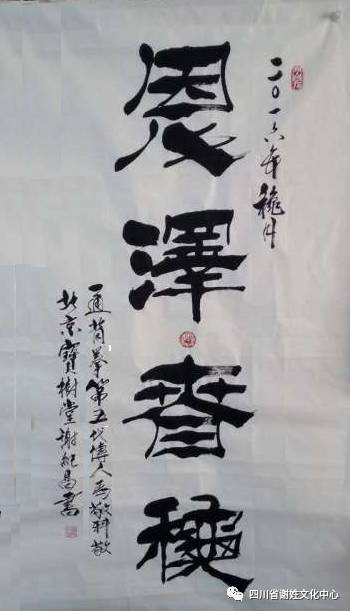 二〇一六年穐月
恩澤春穐
一通背拳第五代傳人馬敬科敬
北京寶樹堂謝紀昌書
四川省谢姓文化中心